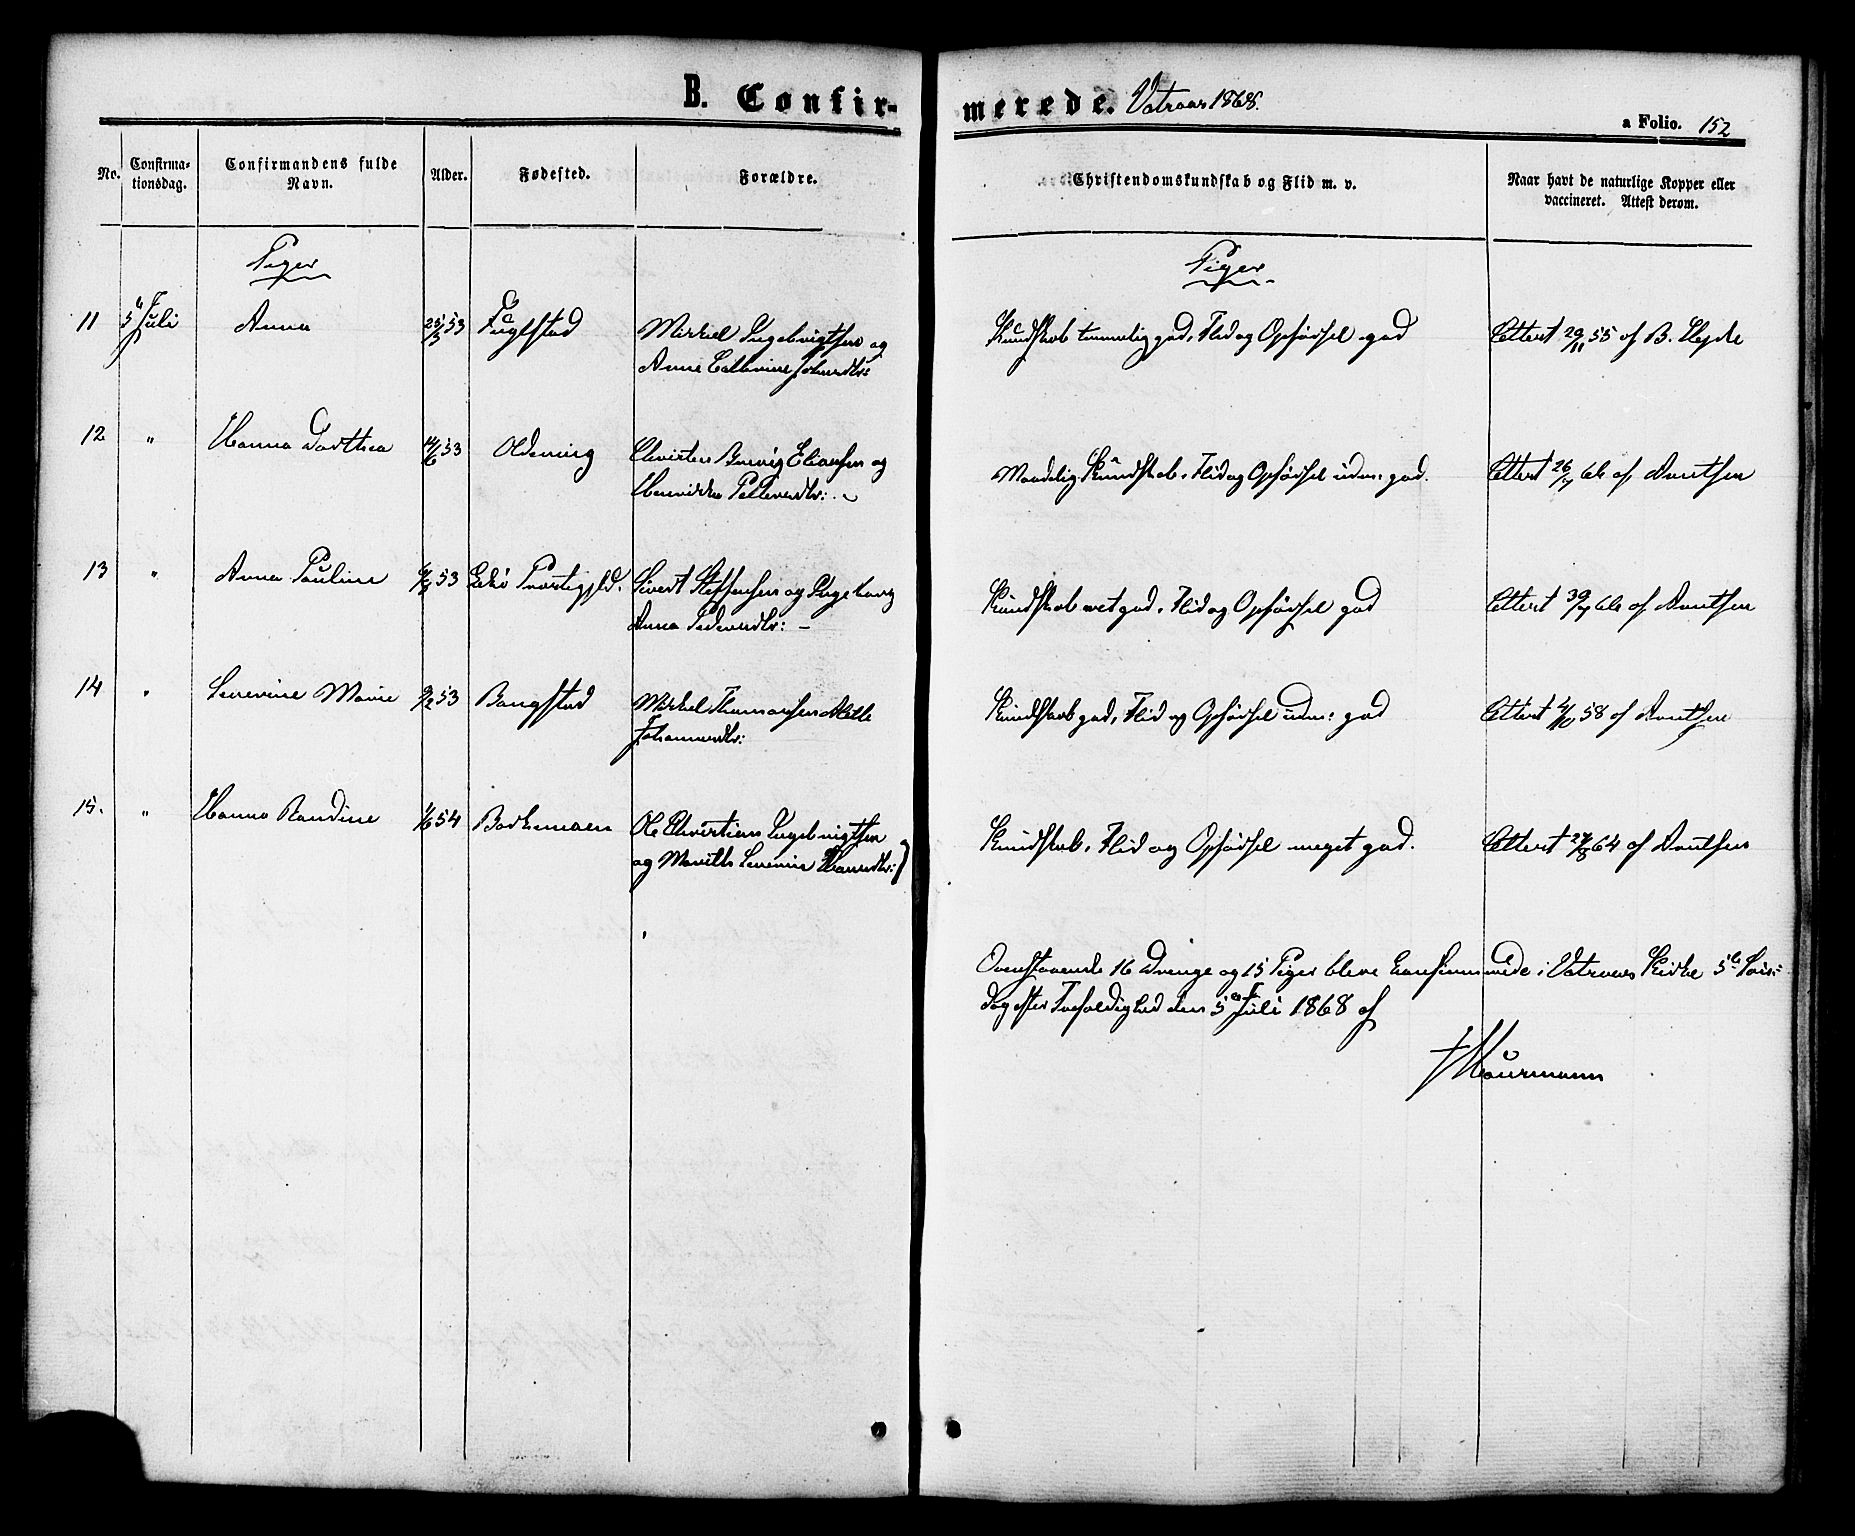 B. Confir-
merede. Vatraas 1868.
a Folio. 152
No.
Confirma-
tionsdag.
Confirmandens fulde
Navn.
Alder.
Fødested.
Forældre.
Christendomskundskab og Flid m. v.
Naar havt de naturlige Kopper eller
vaccineret. Attest derom.
Piger
Piger
11 5 Juli Anna 25/3 53 Fuglstad Mikkel Ingebrigtsen og
Anne Cathrine Johnsdtr:
Kundskab temmelig god, Flid og Opførsel god
Attest 29/11 55 af B. Hejde
12 " Hanna Dorthea 14/6 53 Oldervig Christen Brevig Eliassen og
Henrikke Pettersdtr:
Maadelig Kundskab, Flid og Opførsel udm: god.
Attest 26/7 66 af Arntsen
13 " Anna Pauline 53 Sivert Steffensen og Ingeborg
Anna Pedersdtr: –
Kundskab met god, Flid og Opførsel god
Attest 30/7 66 af Arntsen
14 " Severine Marie 9/2 53 Bangstad Mikkel Thomassen Mette
Johannesdtr:
Kundskab god, Flid og Opførsel udm: god
Attest 58 af Arntsen
15. " Hanna Randine 1/6 54 Ole Christian Ingebrigtsen
og Marith Severine Hansdtr:
Kundskab, Flid og Opførsel meget god.
Attest 27/8 64 af Arntsen
Ovenstaaende 16 Drenge og 15 Piger bleve konfirmerede i Vatraas Kirke 5te Søn-
dag efter Trefoldighed den 5 Juli 1868 af